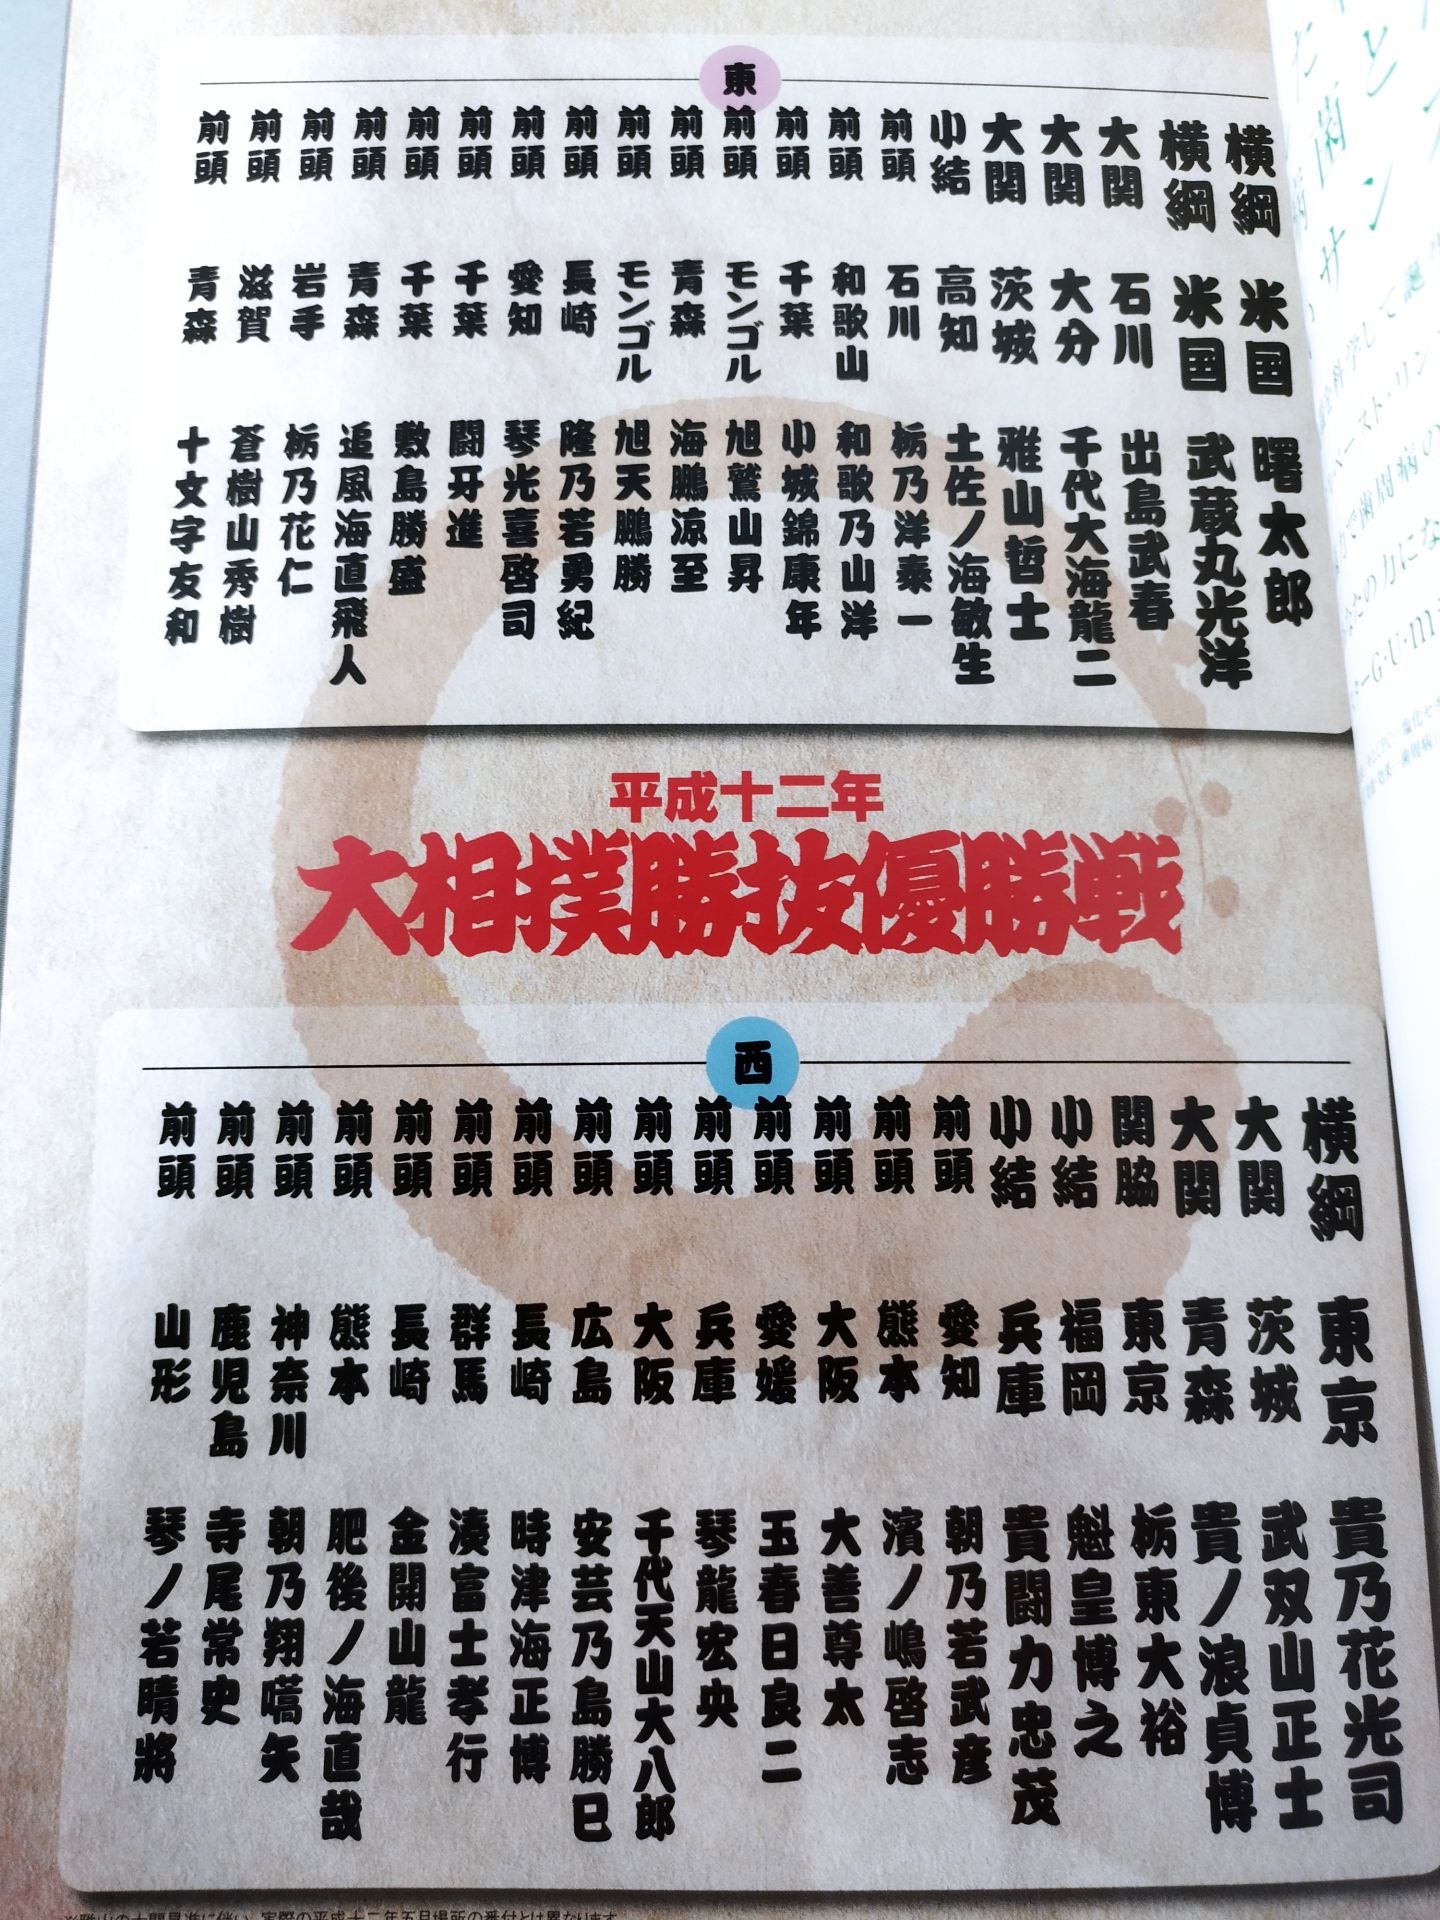 東
横綱 米国 曙太郎
横綱 米国 武蔵丸光洋
大関 石川 出島武春
大関 大分 千代大海龍二
大関 茨城 雅山哲士
小結 高知 土佐ノ海敏生
前頭 石川 栃乃洋泰一
前頭 和歌山 和歌乃山洋
前頭 千葉 小城錦康年
前頭 モンゴル 旭鷲山昇
前頭 青森 海鵬涼至
前頭 モンゴル 旭天鵬勝
前頭 長崎 隆乃若勇紀
前頭 愛知 琴光喜啓司
前頭 千葉 闘牙進
前頭 千葉 敷島勝盛
前頭 青森 追風海直飛人
前頭 岩手 栃乃花仁
前頭 滋賀 蒼樹山秀樹
前頭 青森 十文字友和
平成十二年
大相撲勝抜優勝戦
西
横綱 東京 貴乃花光司
大関 茨城 武双山正士
大関 青森 貴ノ浪貞博
関脇 東京 栃東大裕
小結 福岡 魁皇博之
小結 兵庫 貴闘力忠茂
前頭 愛知 朝乃若武彦
前頭 熊本 濱ノ嶋啓志
前頭 大阪 大善尊太
前頭 愛媛 玉春日良二
前頭 兵庫 琴龍宏央
前頭 大阪 千代天山大八郎
前頭 広島 安芸乃島勝巳
前頭 長崎 時津海正博
前頭 群馬 湊富士孝行
前頭 長崎 金開山龍
前頭 熊本 肥後ノ海直哉
前頭 神奈川 朝乃翔嚆矢
前頭 鹿児島 寺尾常史
前頭 山形 琴ノ若晴將
※雅山の大関昇進に伴い、実際の平成十二年五月場所の番付とは異なります